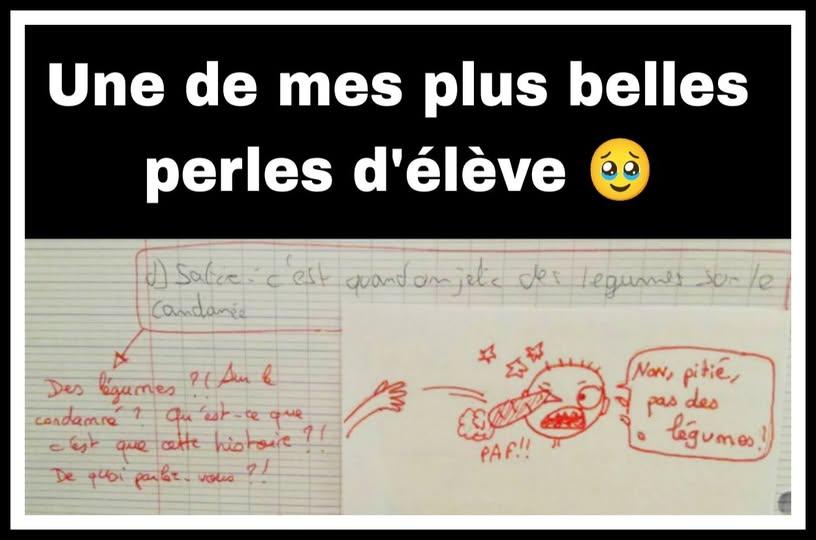 Une de mes plus belles
perles d'élève 🥹
d) Satire : c'est quand on jette des légumes sur le
candanée
Des légumes ?! Sur le
condamné ? Qu'est-ce que
c'est que cette histoire ?!
De quoi parlez-vous ?!
PAF!!
Non, pitié,
pas des
légumes !